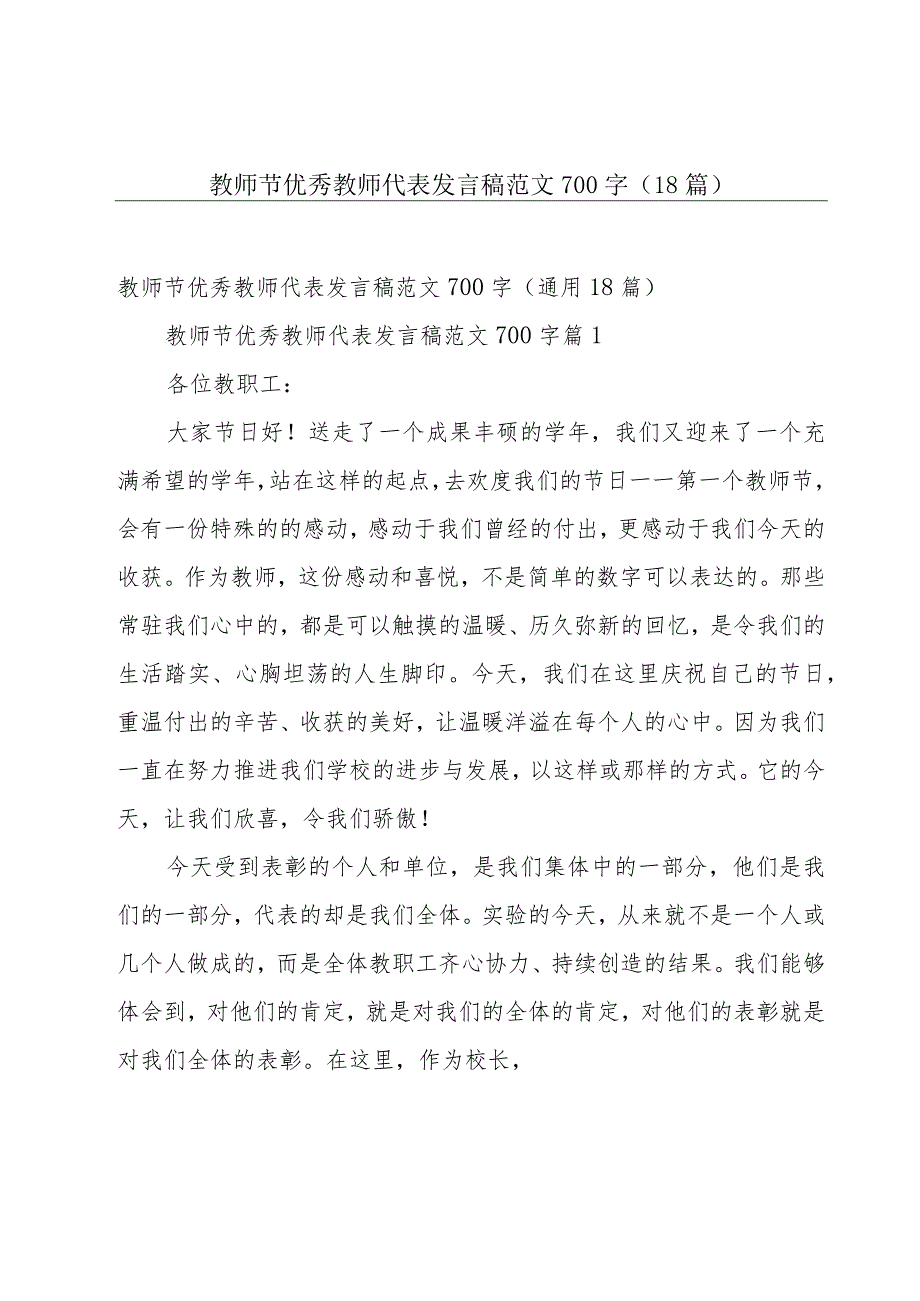 教师节优秀教师代表发言稿范文 700 字（18 篇）
教师节优秀教师代表发言稿范文 700 字（通用 18 篇）
教师节优秀教师代表发言稿范文 700 字篇 1
各位教职工：
大家节日好！送走了一个成果丰硕的学年，我们又迎来了一个充
满希望的学年，站在这样的起点，去欢度我们的节日一一第一个教师节，
会有一份特殊的的感动，感动于我们曾经的付出，更感动于我们今天的
收获。作为教师，这份感动和喜悦，不是简单的数字可以表达的。那些
常驻我们心中的，都是可以触摸的温暖、历久弥新的回忆，是令我们的
生活踏实、心胸坦荡的人生脚印。今天，我们在这里庆祝自己的节日，
重温付出的辛苦、收获的美好，让温暖洋溢在每个人的心中。因为我们
一直在努力推进我们学校的进步与发展，以这样或那样的方式。它的今
天，让我们欣喜，令我们骄傲！
今天受到表彰的个人和单位，是我们集体中的一部分，他们是我
们的一部分，代表的却是我们全体。实验的今天，从来就不是一个人或
几个人做成的，而是全体教职工齐心协力、持续创造的结果。我们能够
体会到，对他们的肯定，就是对我们的全体的肯定，对他们的表彰就是
对我们全体的表彰。在这里，作为校长，